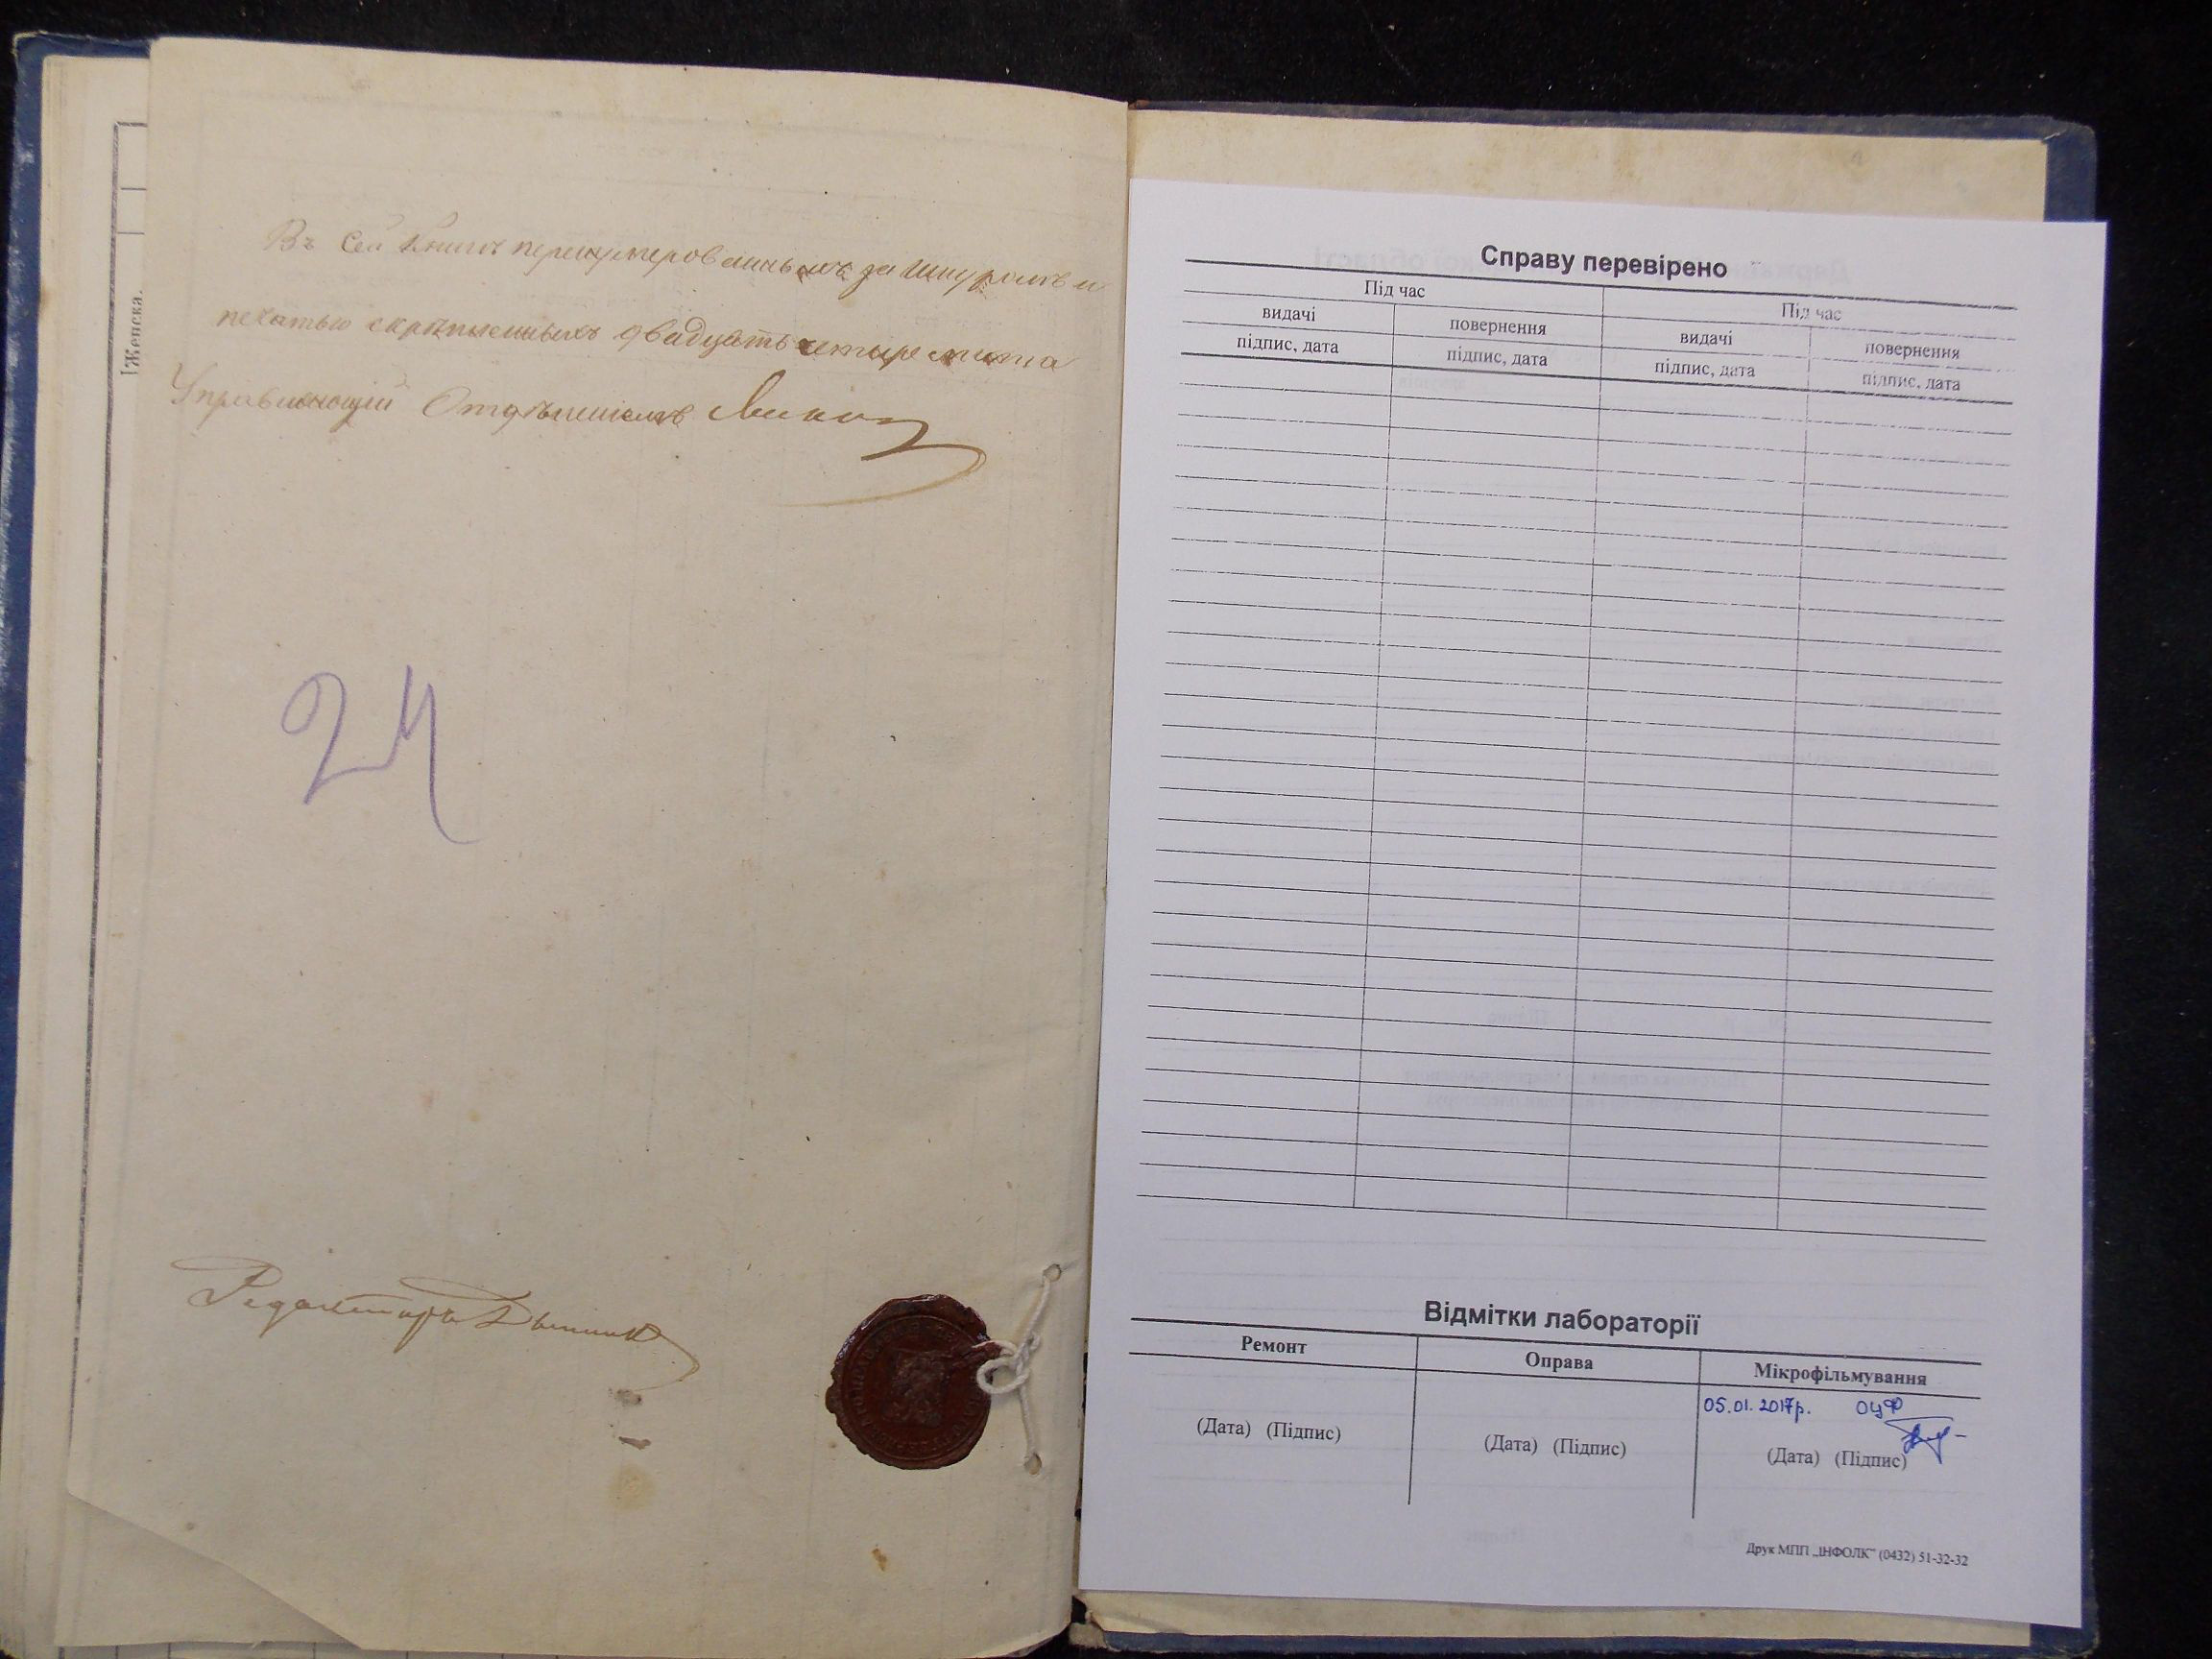 Женска.
Въ сей Книгѣ перенумерованныхъ за шнуромъ и
печатью скрѣпленныхъ двадцать четыре листа
Управляющій Отдѣленіемъ
24
Редакторъ
Справу перевірено
Під час Під час
видачі повернення видачі повернення
підпис, дата підпис, дата підпис, дата підпис, дата
Відмітки лабораторії
Ремонт Оправа Мікрофільмування
05.01.2017р. ОЦФ
(Дата) (Підпис) (Дата) (Підпис) (Дата) (Підпис)
Друк МПП „ІНФОЛК" (0432) 51-32-32